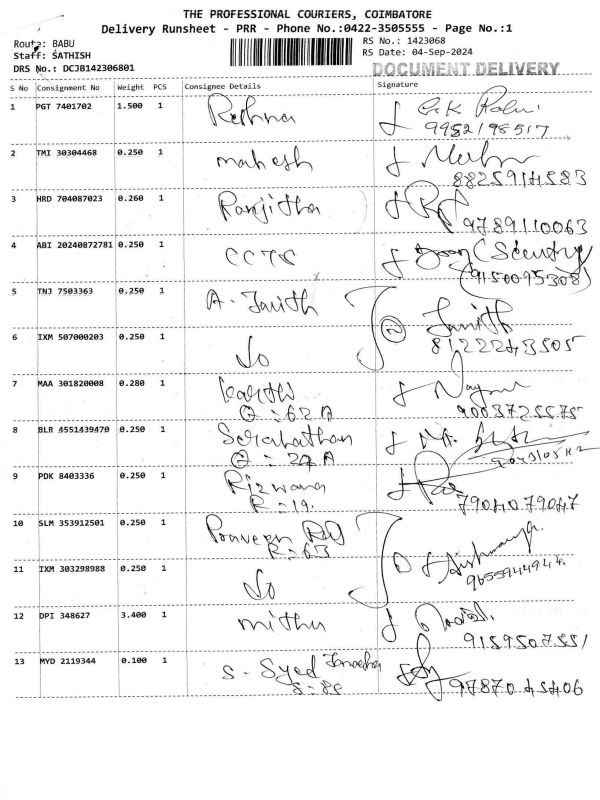 THE PROFESSIONAL COURIERS, COIMBATORE
Delivery Runsheet - PRR - Phone No.:0422-3505555 - Page No.:1
Route: BABU
RS No.: 1423068
Staff: SATHISH
RS Date: 04-Sep-2024
DRS No.: DCJB142306801
DOCUMENT DELIVERY
S No Consignment No Weight PCS Consignee Details Signature
1 PGT 7401702 1.500 1
9952198517
2 TMI 30304468 0.250 1 mahesh
8825914583
3 HRD 704087023 0.260 1 Ranjitha
9789110063
4 ABI 20240872781 0.250 1 CCTS (Security)
(9150095308)
5 TNJ 7503363 0.250 1 A. Janith Janith
6 IXM 507000203 0.250 1 Do 8122243505
7 MAA 301820008 0.280 1 Karthi
Q = 62 A 9003725575
8 BLR 4551439470 0.250 1
9 PDK 8403336 0.250 1 Rizwana
R = 19. 7904079047
10 SLM 353912501 0.250 1 Praveen
R = 63
11 IXM 303298988 0.250 1 Do 9655944944.
12 DPI 348627 3.400 1 mithu
9159507551
13 MYD 2119344 0.100 1 S. Syed
S = 8S 9787045406